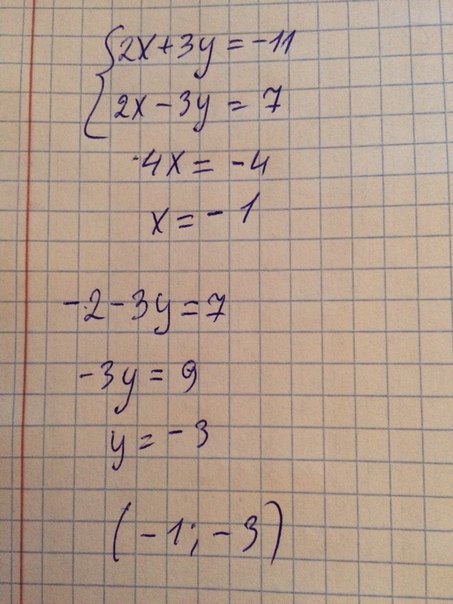 {2x+3y=-11
2x-3y=7
4x=-4
x=-1
-2-3y=7
-3y=9
y=-3
(-1;-3)